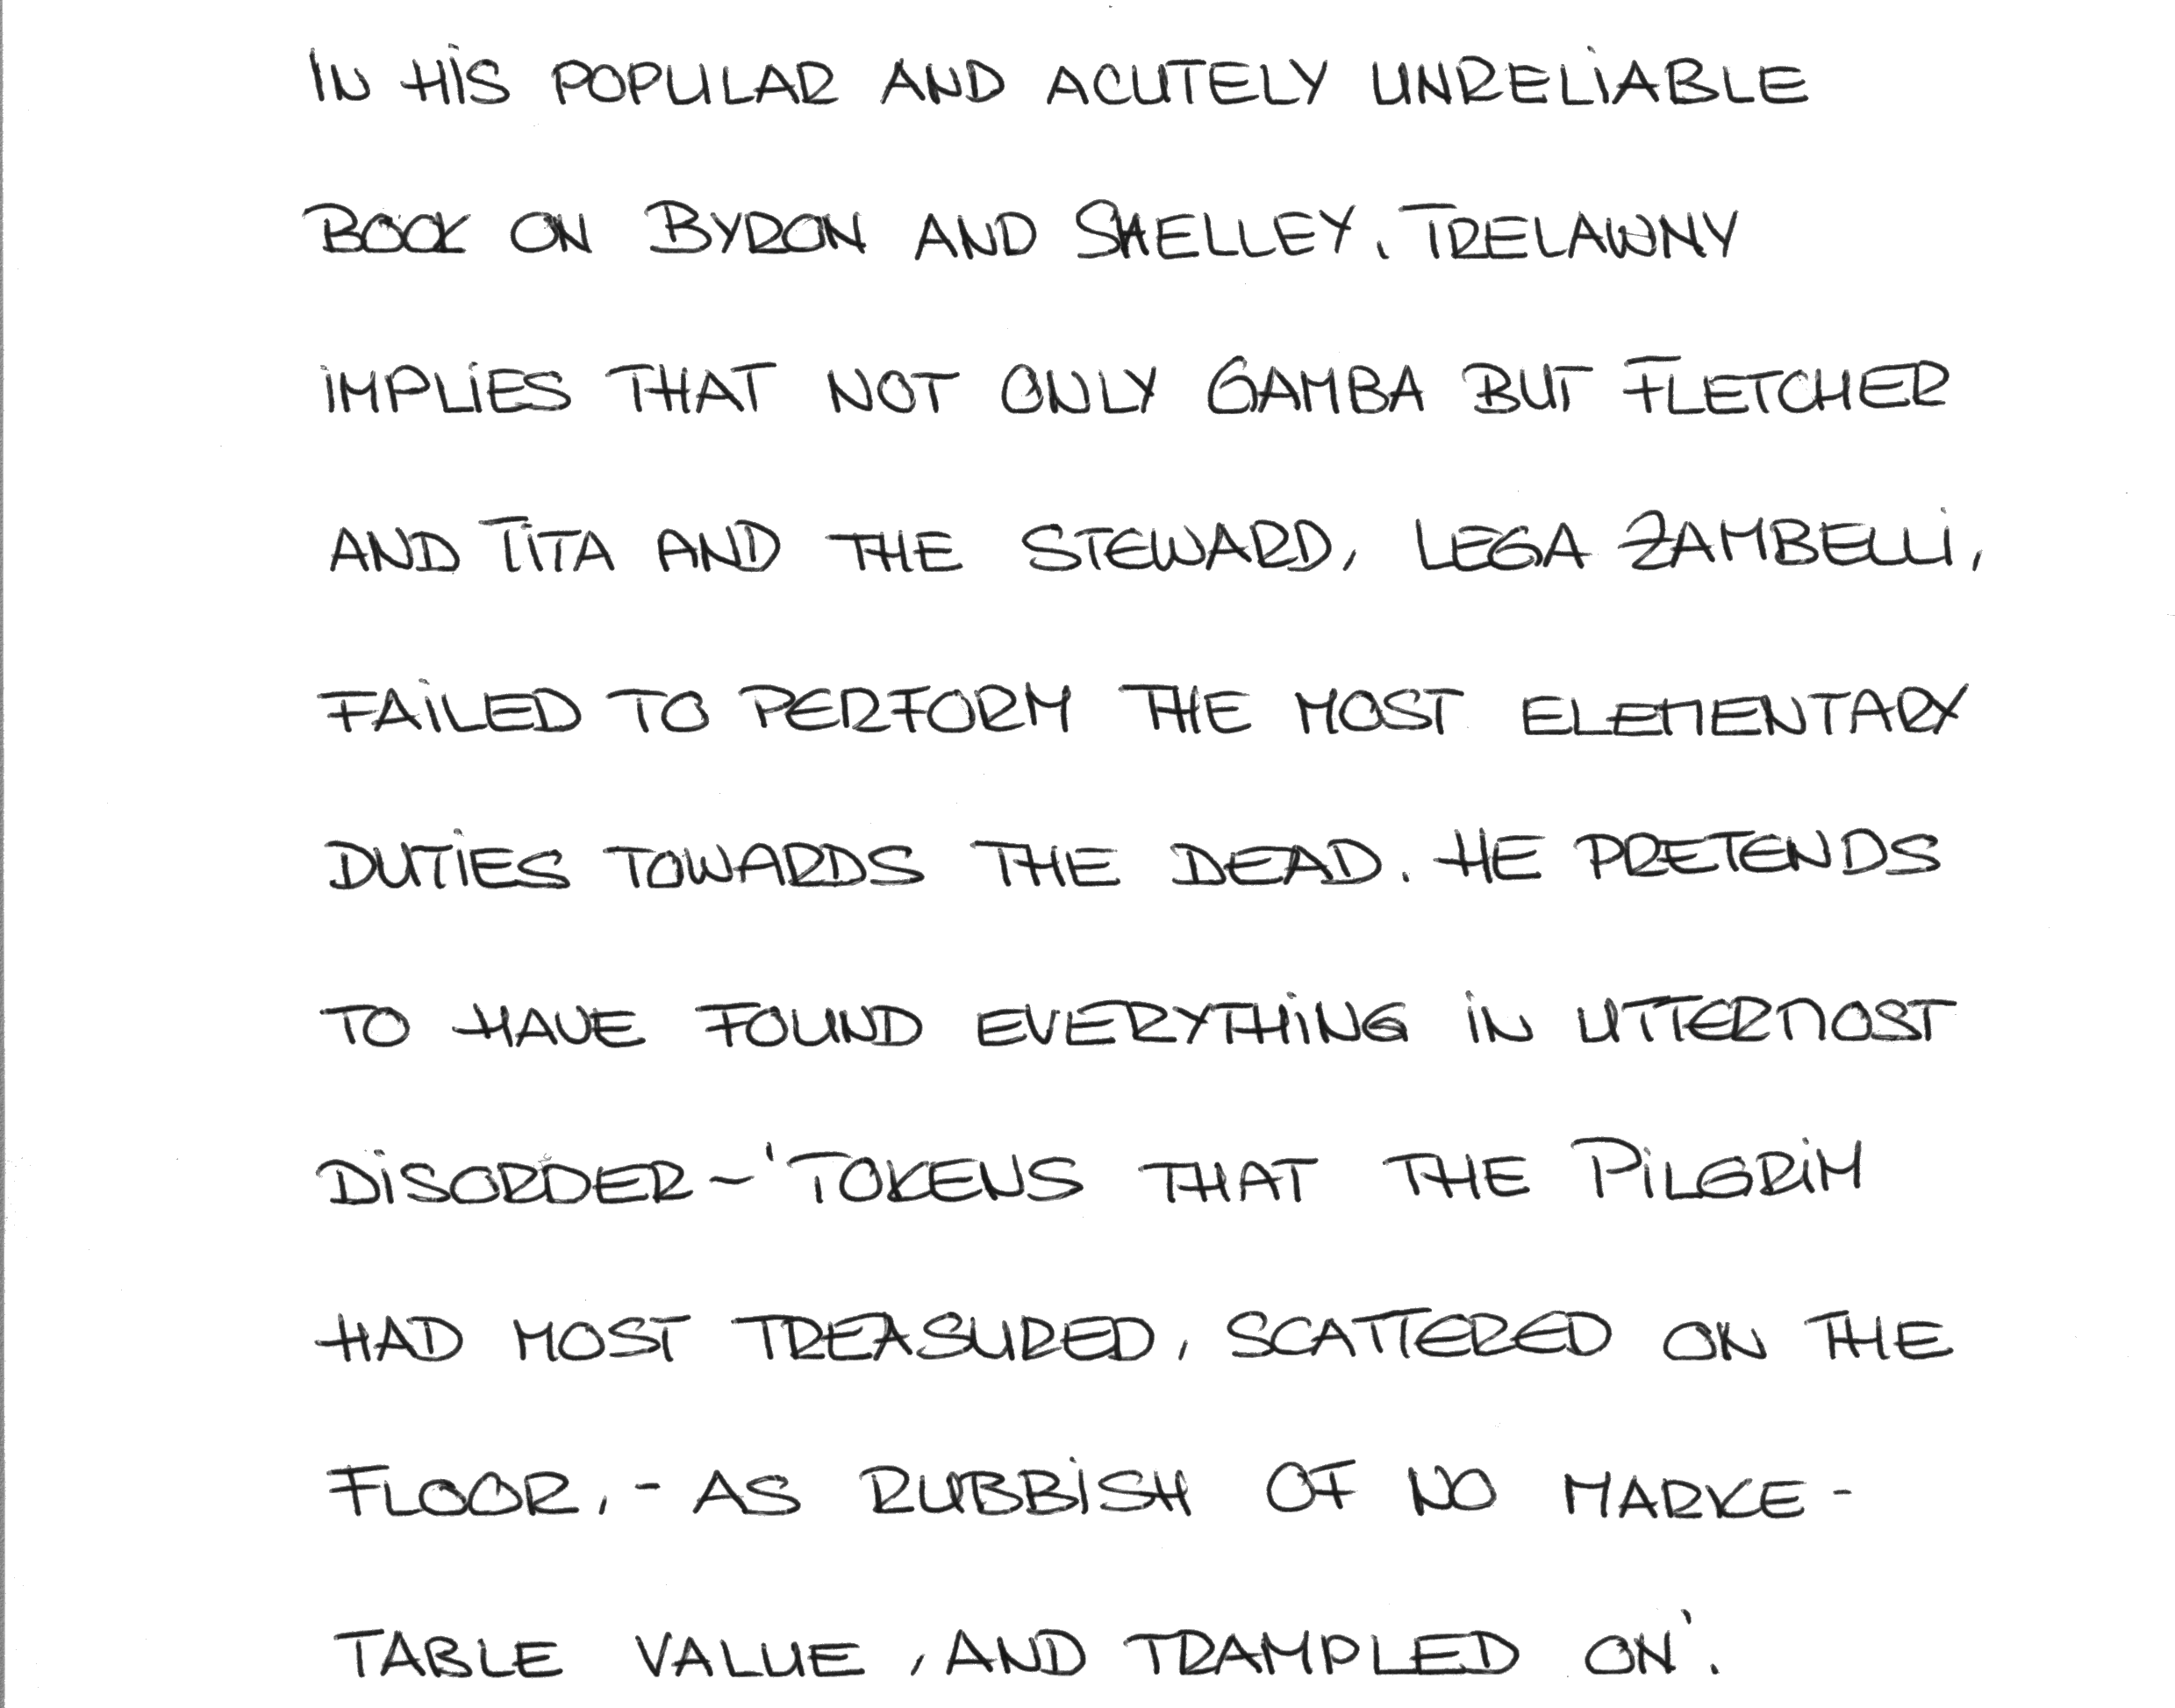 IN HIS POPULAR AND ACUTELY UNRELIABLE
BOOK ON BYRON AND SHELLEY, TRELAWNY
IMPLIES THAT NOT ONLY GAMBA BUT FLETCHER
AND TITA AND THE STEWARD, LEGA ZAMBELLI,
FAILED TO PERFORM THE MOST ELEMENTARY
DUTIES TOWARDS THE DEAD. HE PRETENDS
TO HAVE FOUND EVERYTHING IN UTTERMOST
DISORDER - 'TOKENS THAT THE PILGRIM
HAD MOST TREASURED, SCATTERED ON THE
FLOOR, - AS RUBBISH OF NO MARKE-
TABLE VALUE, AND TRAMPLED ON'.